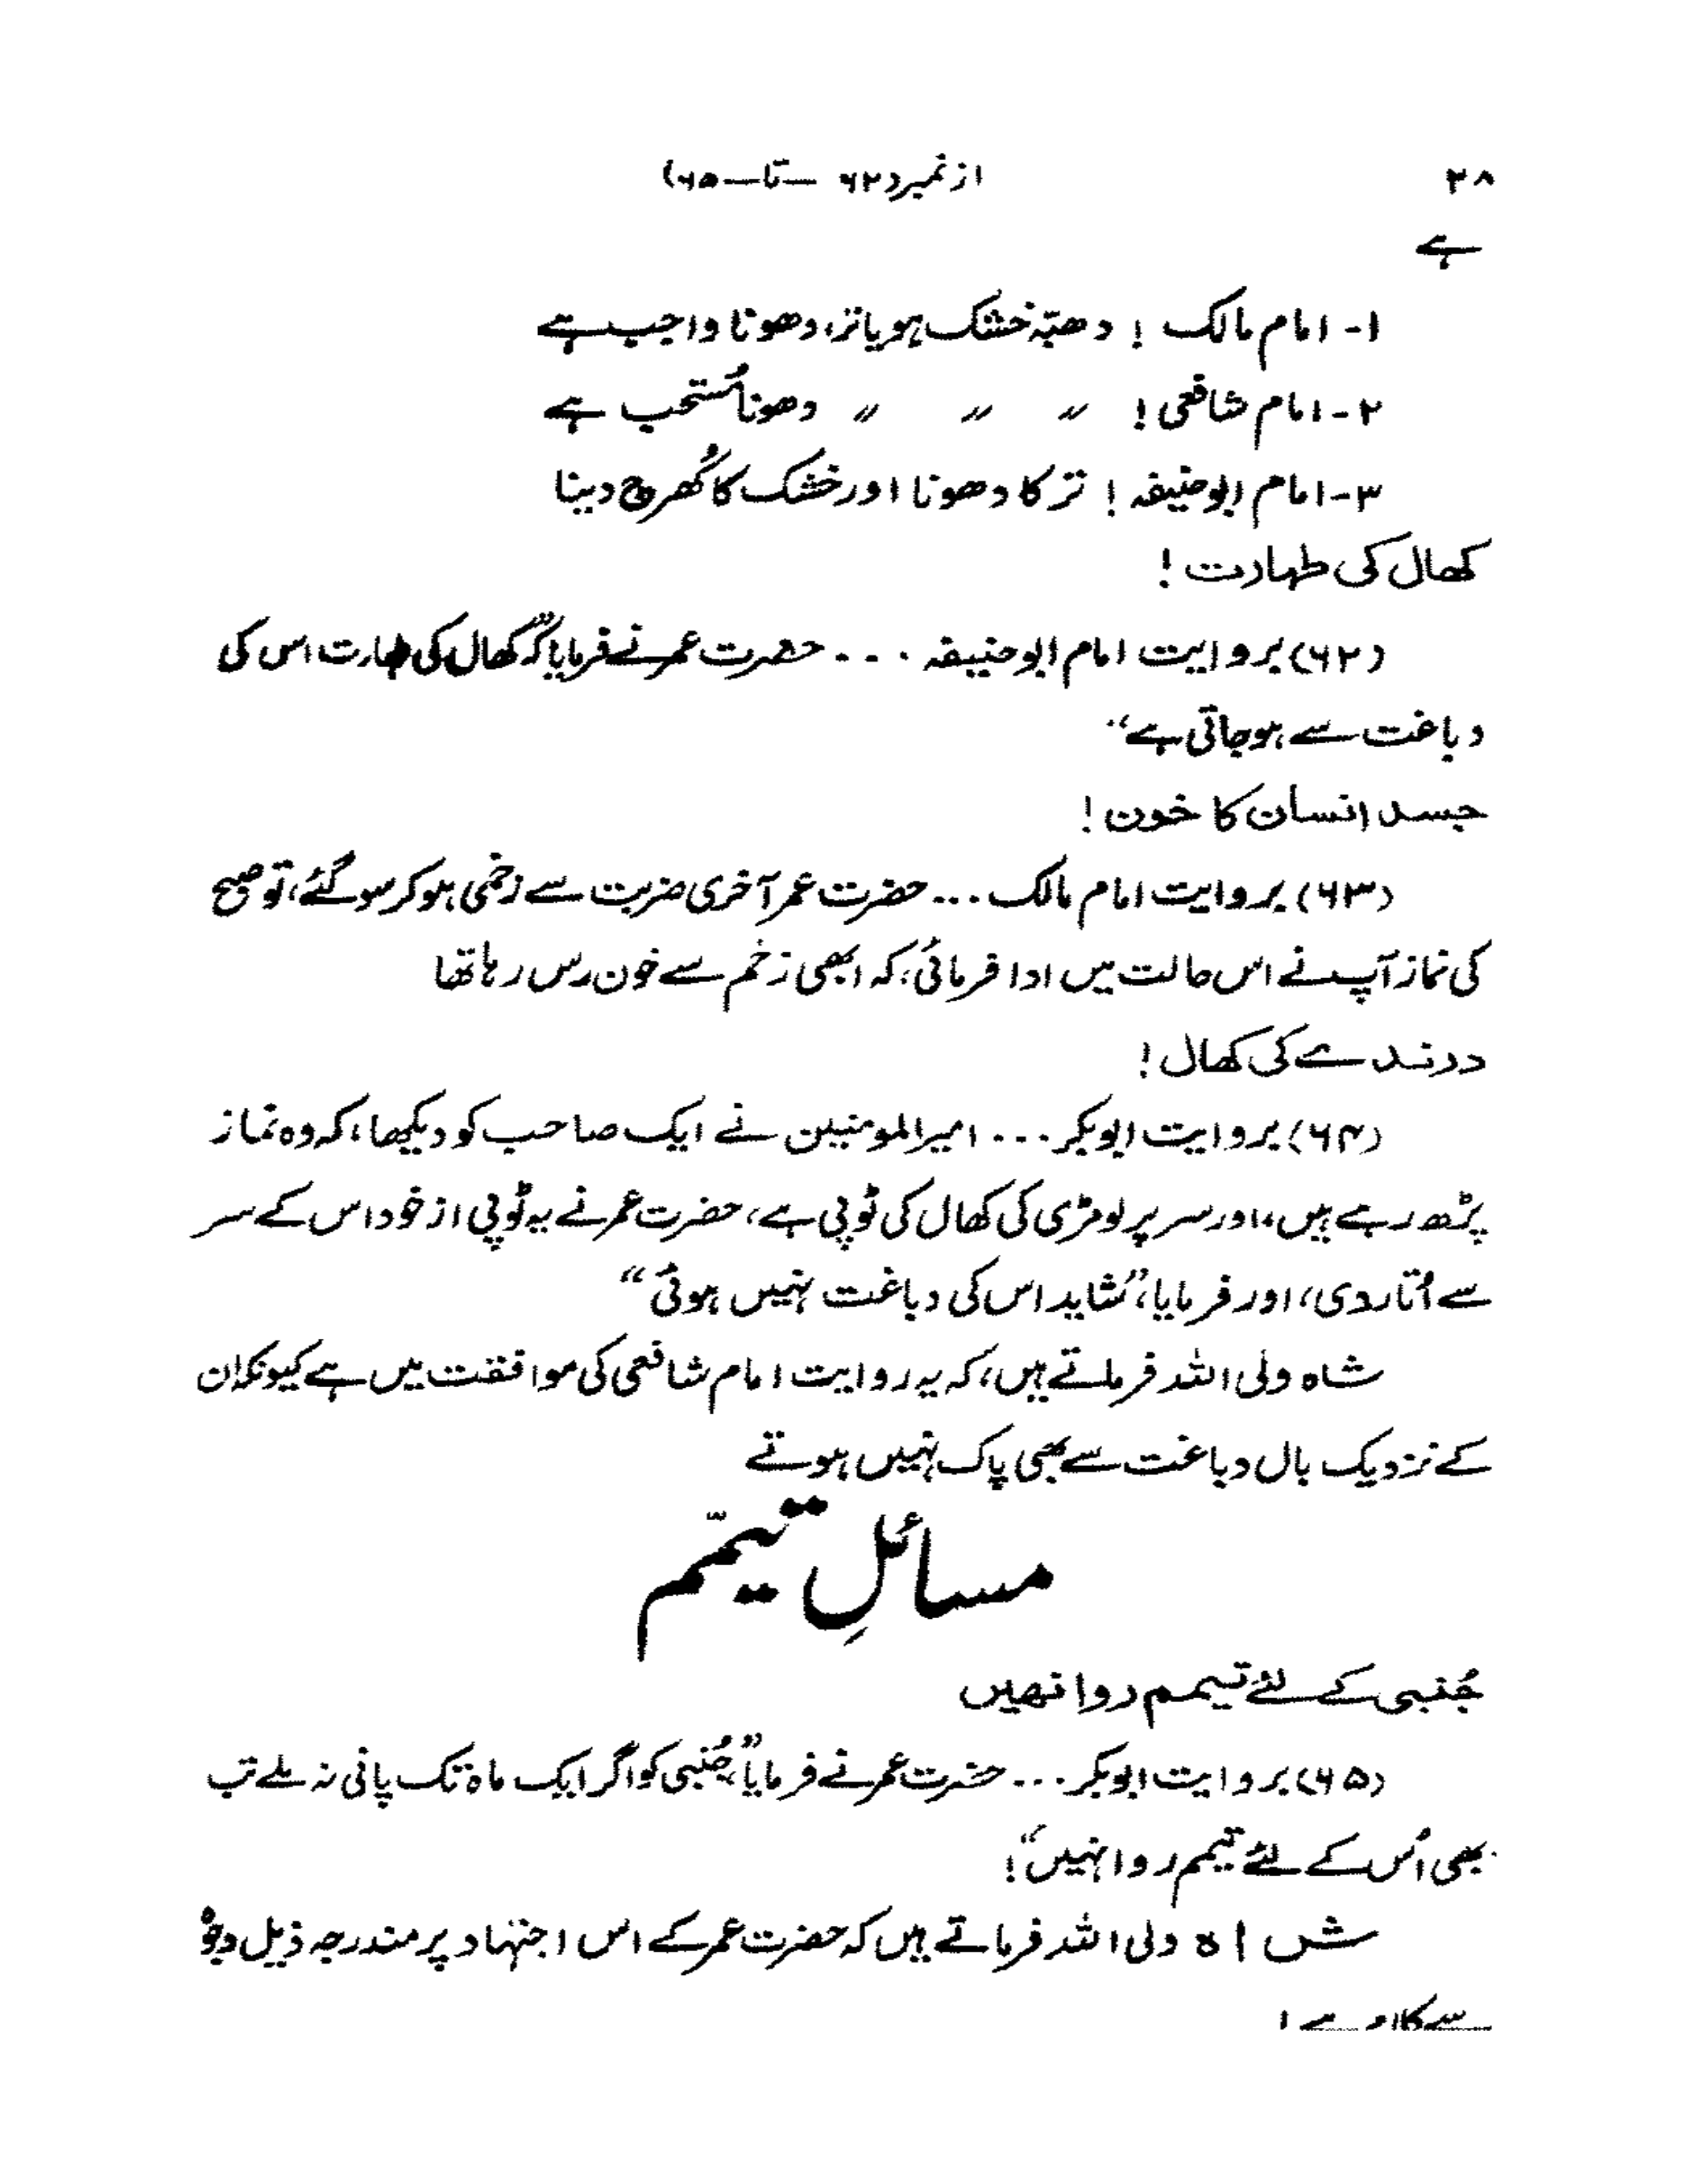 ۲۸ از نمبر (۶۲ — تا — ۶۵)
ہے
۱- امام مالک ! دھبّہ خشک ہو یا تر، دھونا واجب ہے
۲- امام شافعی ! 〃 〃 〃 دھونا مُستحب ہے
۳- امام ابوحنیفہ ! تر کا دھونا اور خشک کا کُھرچ دینا
کھال کی طہارت !
(۶۲) بروایت امام ابوحنیفہ ۔ ۔ ۔ حضرت عمر نے فرمایا کہ ”کھال کی طہارت اس کی
دباغت سے ہوجاتی ہے“
جسد انسان کا خون !
(۶۳) بروایت امام مالک ۔۔۔ حضرت عمر آخری ضربت سے زخمی ہوکر سو گئے، تو صبح
کی نماز آپ نے اس حالت میں ادا فرمائی، کہ ابھی زخم سے خون رس رہا تھا
درندے کی کھال !
(۶۴) بروایت ابوبکر ۔۔۔ امیرالمومنین نے ایک صاحب کو دیکھا، کہ وہ نماز
پڑھ رہے ہیں، اور سر پر لومڑی کی کھال کی ٹوپی ہے، حضرت عمر نے یہ ٹوپی از خود اس کے سر
سے اُتار دی، اور فرمایا، ”شاید اس کی دباغت نہیں ہوئی“
شاہ ولی اللہ فرماتے ہیں، کہ یہ روایت امام شافعی کی موافقت میں ہے کیونکہ ان
کے نزدیک بال دباغت سے بھی پاک نہیں ہوتے
مسائلِ تیمّم
جُنبی کے لئے تیمم روا نہیں
(۶۵) بروایت ابوبکر ۔۔۔ حضرت عمر نے فرمایا ”جُنبی کو اگر ایک ماہ تک پانی نہ ملے تب
بھی اُس کے لئے تیمم روا نہیں“!
شاہ ولی اللہ فرماتے ہیں کہ حضرت عمر کے اس اجتہاد پر مندرجہ ذیل وجوہ
سے کلام ہے !